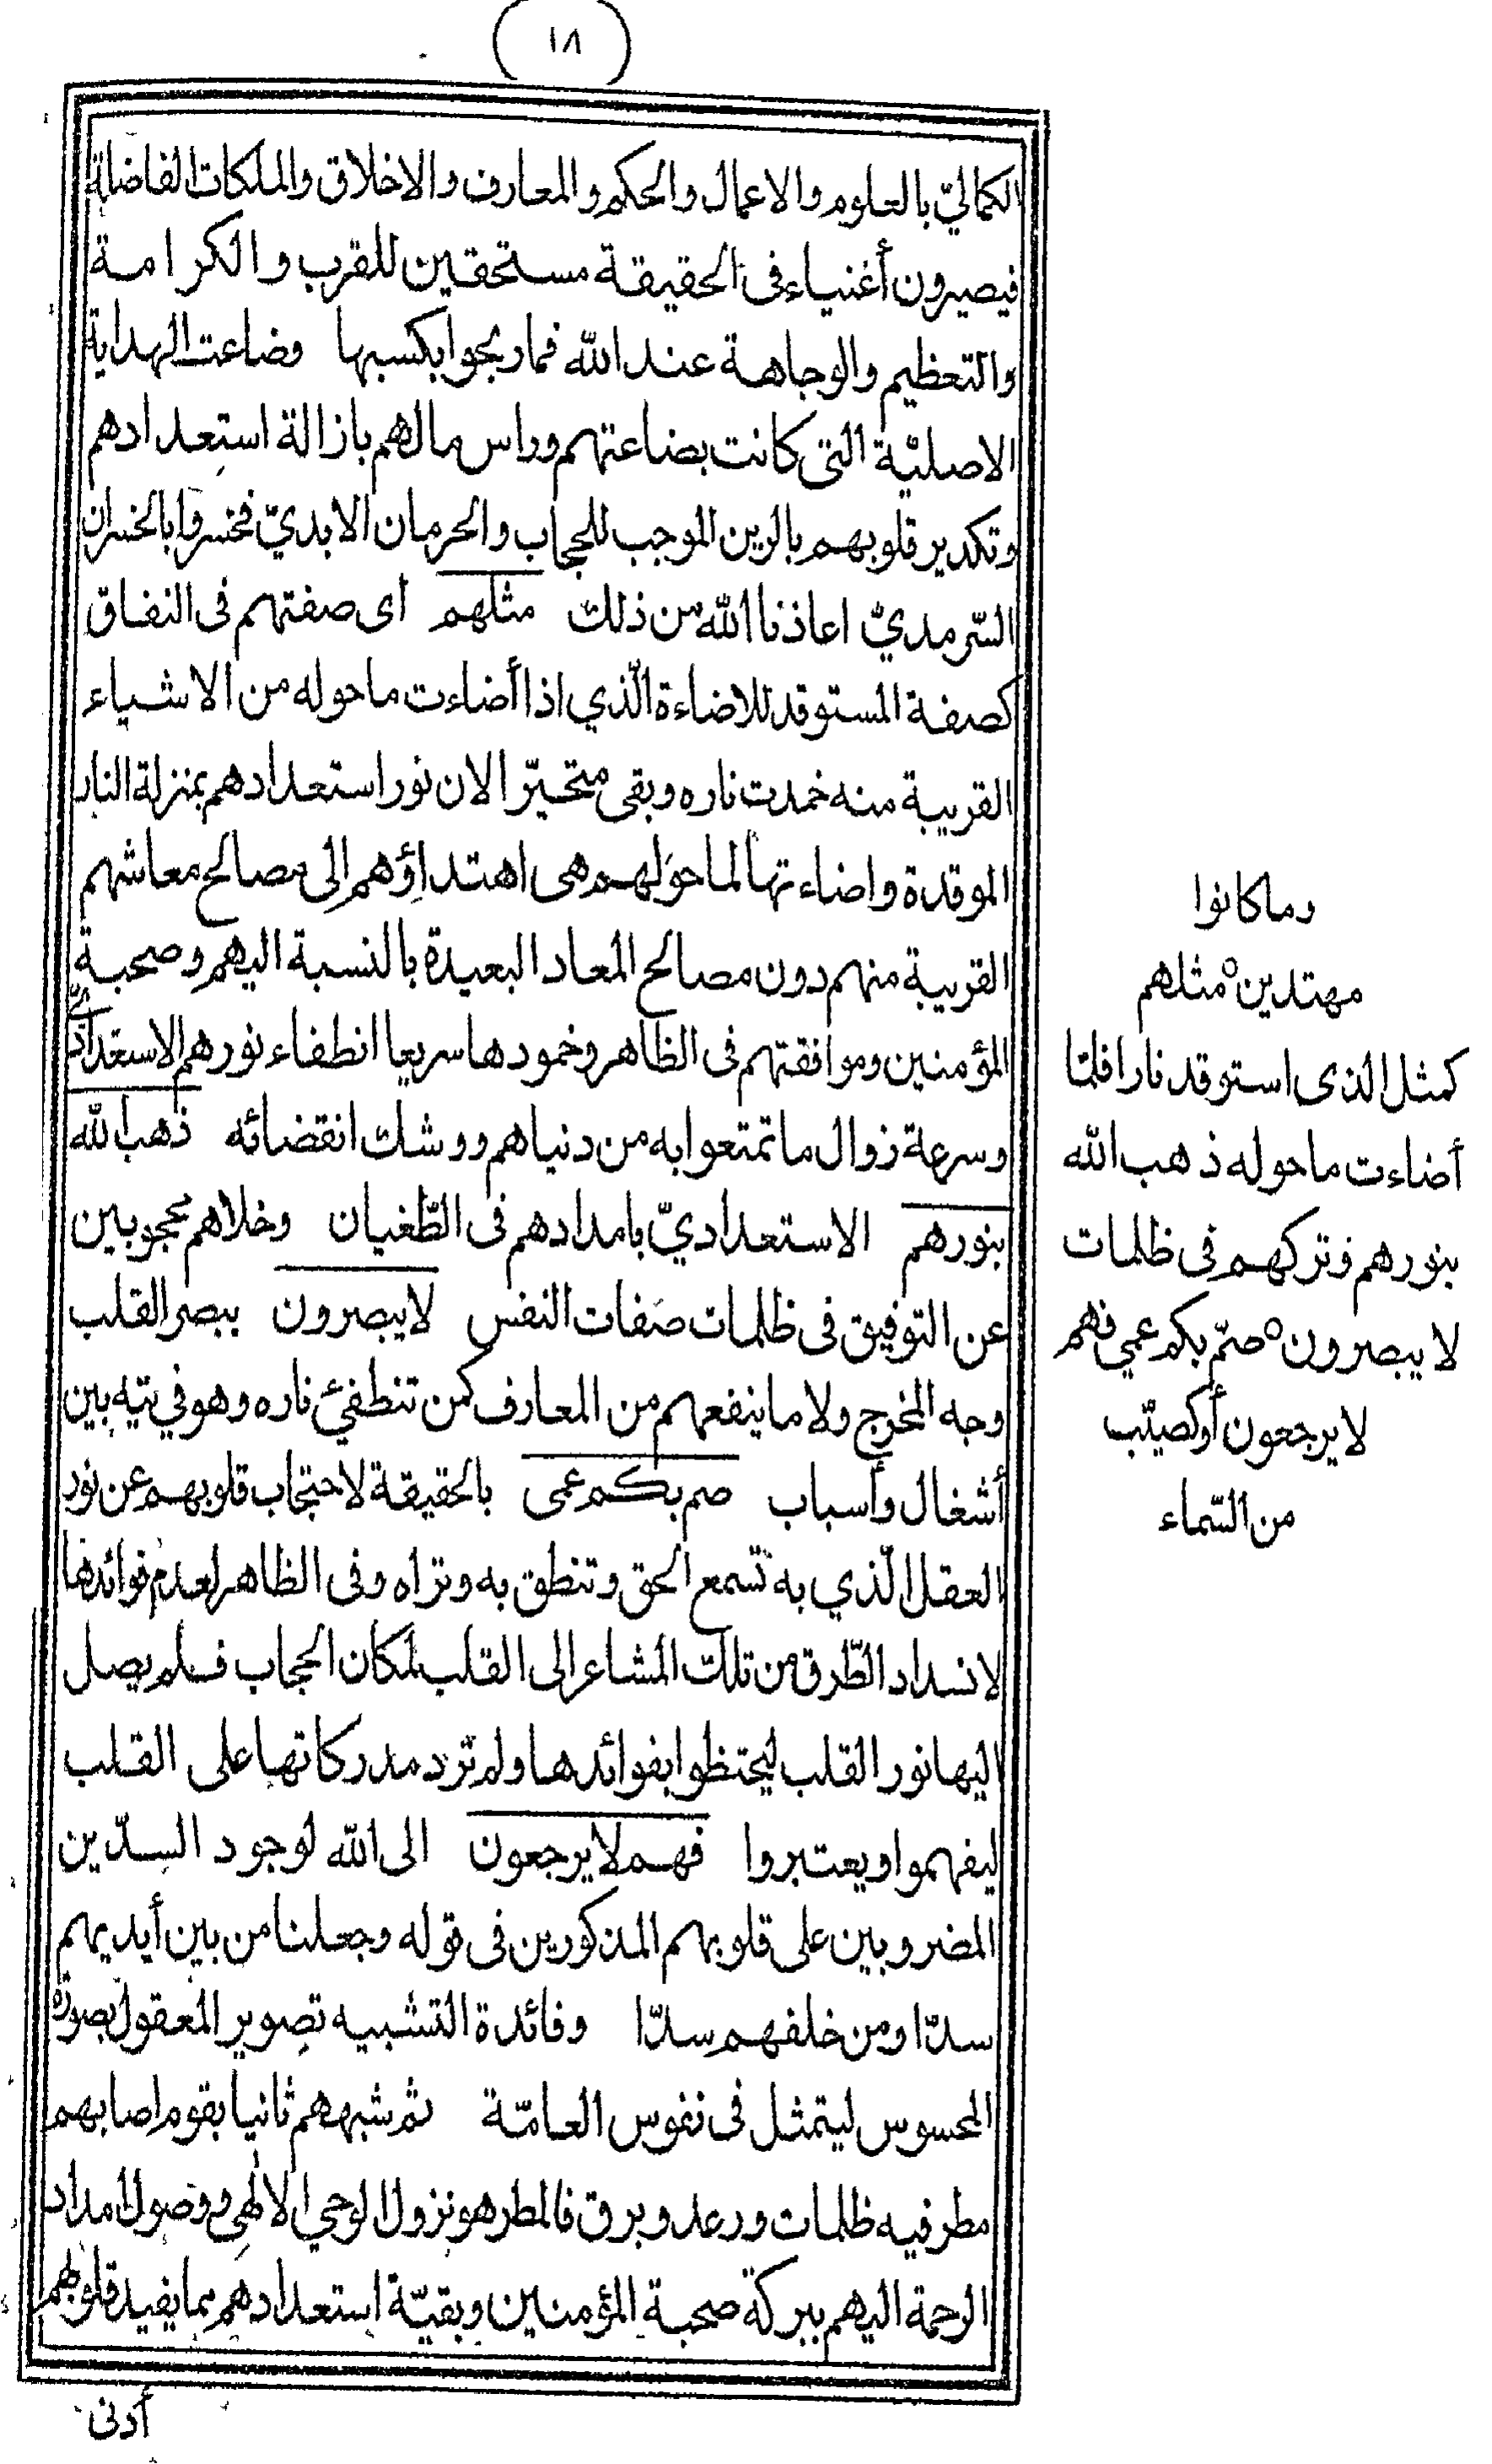 ١٨
الكماليّ بالعلوم والاعمال والحكم والمعارف والاخلاق والملكات الفاضلة
فيصيرون أغنياء فى الحقيقة مستحقين للقرب والكرامة
والتعظيم والوجاهة عند الله فما ربحوا بكسبها وضاعت الهداية
الاصليّة التى كانت بضاعتهم وراس مالهم بازالة استعدادهم
وتكدير قلوبهم بالرين الموجب للحجاب والحرمان الابديّ فخسروا بالخسران
السّرمديّ اعاذنا الله من ذلك مثلهم اى صفتهم فى النفاق
كصفة المستوقد للاضاءة الّذي اذا أضاءت ماحوله من الاشياء
القريبة منه خمدت ناره وبقى متحيّرا لان نور استعدادهم بمنزلة النار
الموقدة واضاءتها لما حولهم هى اهتداؤهم إلى مصالح معاشهم
القريبة منهم دون مصالح المعاد البعيدة بالنسبة اليهم وصحبة
المؤمنين وموافقتهم فى الظاهر وخمودها سريعا انطفاء نورهم الاستعداديّ
وسرعة زوال ما تمتعوا به من دنياهم ووشك انقضائه ذهب الله
بنورهم الاستعداديّ بامدادهم فى الطّغيان وخلاهم محجوبين
عن التوفيق فى ظلمات صفات النفس لايبصرون ببصر القلب
وجه المخرج ولا ما ينفعهم من المعارف كمن تنطفئ ناره وهو في تيه بين
أشغال وأسباب صم بكم عمى بالحقيقة لاحتجاب قلوبهم عن نور
العقل الّذي به تسمع الحق وتنطق به وتراه وفى الظاهر لعدم فوائدها
لانسداد الطّرق من تلك المشاعر الى القلب لمكان الحجاب فلم يصل
اليها نور القلب ليحتظوا بفوائدها ولم ترد مدركاتها على القلب
ليفهموا ويعتبروا فهم لايرجعون الى الله لوجود السدّين
المضروبين على قلوبهم المذكورين فى قوله وجعلنا من بين أيديهم
سدّا ومن خلفهم سدّا وفائدة التشبيه تصوير المعقول بصورة
المحسوس ليتمثل فى نفوس العامّة ثم شبههم ثانيا بقوم اصابهم
مطر فيه ظلمات ورعد وبرق فالمطر هو نزول الوحي الالهي ووصول امداد
الرحمة اليهم ببركة صحبة المؤمنين وبقيّة استعدادهم مما يفيد قلوبهم
أدنى
وما كانوا
مهتدين ه مثلهم
كمثل الذى استوقد نارا فلمّا
أضاءت ماحوله ذهب الله
بنورهم وتركهم فى ظلمات
لا يبصرون ه صمّ بكم عمي فهم
لايرجعون أوكصيّب
من السّماء